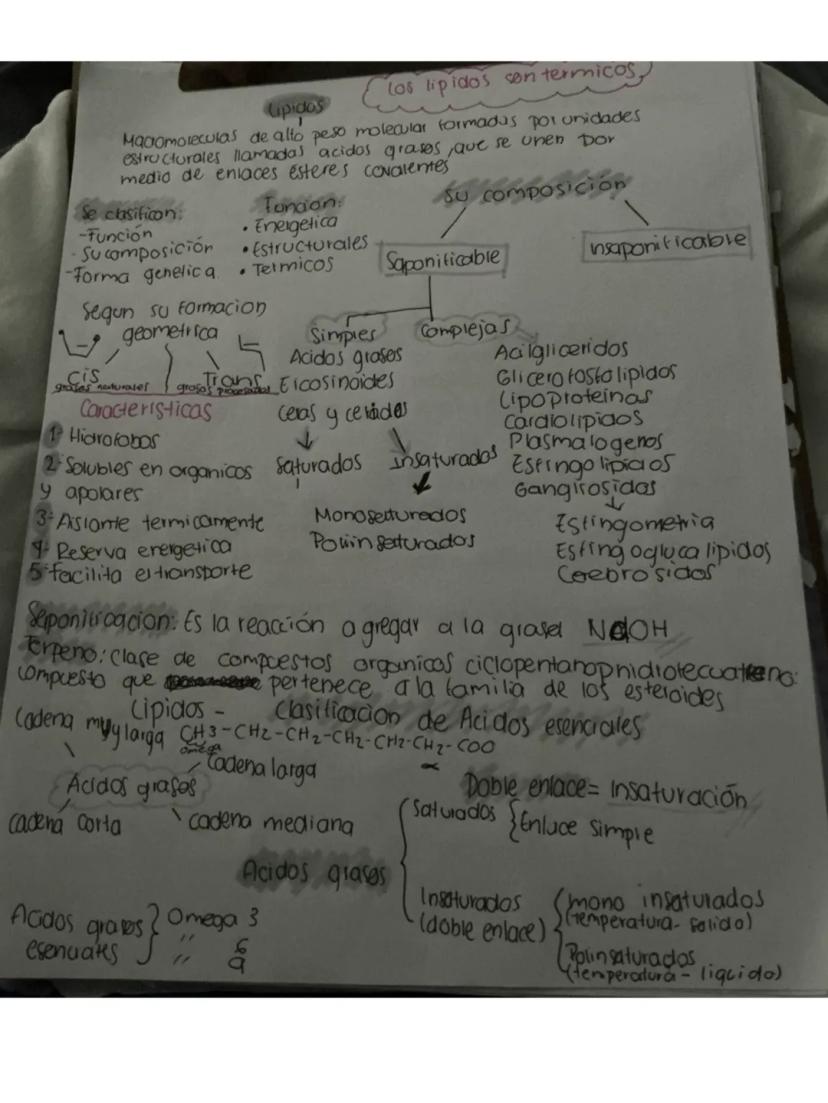 Los lipidos son termicos,
Lipidos
Macromoleculas de alto peso molecular formadas por unidades
estructurales llamadas acidos grasos, que se unen por
medio de enlaces ésteres covalentes
Su composición
Se clasifican:
-Función
- Su composición
-Forma genetica
Funcion:
• Energetica
• Estructurales
• Termicos
Saponificable
insaponificable
Segun su formacion
geometrica
Cis
grasas naturales
Trans
grasas procesadas
Simples
Acidos grasos
Eicosinoides
ceras y ceridos
saturados
insaturados
Monosaturados
Poliinsaturados
Complejas
Acilgliceridos
Glicerofosfolipidos
Lipoproteinas
Cardiolipidos
Plasmalogenos
Esfingolipidos
Gangirosidos
Esfingometria
Esfingoglucalipidos
Cerebrosidos
Caracteristicas
1- Hidrofobos
2- Solubles en organicos
y apolares
3- Aislante termicamente
4- Reserva energetica
5- facilita el transporte
Saponificacion: Es la reacción agregar a la grasa NaOH
Terpeno: clase de compuestos organicos
compuesto que pertenece a la familia de los esteroides
Lipidos - Clasificacion de Acidos esenciales
Cadena muy larga CH3-CH2-CH2-CH2-CH2-CH2-COO
omega
Cadena larga
Acidos grasos
cadena corta
cadena mediana
Doble enlace = insaturación
Acidos grasos
Saturados { Enlace simple
Insaturados
(doble enlace)
mono insaturados
(temperatura- solido)
Polinsaturados
(temperatura - liquido)
Acidos grasos
esenciales
Omega 3
,, 6
,, 9